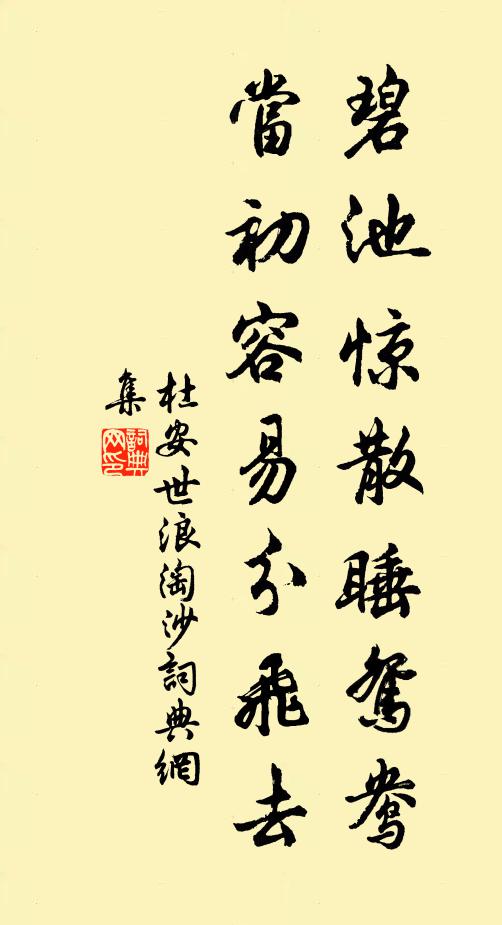 碧池惊散睡鸳鸯
當初容易分飛去
杜安世浪淘沙詞典網
集
詞典
网印